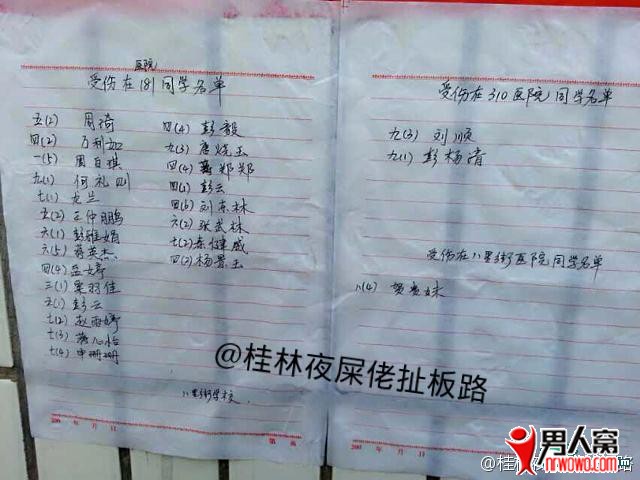 医院
受伤在181同学名单
五(2) 周琦
四(2) 万利加
一(5) 周自琪
九(1) 何礼训
七(1) 龙兰
五(2) 王仲鹏
六(1) 彭雅娟
六(5) 蒋英杰
四(4)
三(1) 栗羽佳
六(1) 彭云
七(2) 赵雨婷
七(3) 蒋心怡
七(4) 申珊珊
四(4) 彭毅
九(3) 唐烧玉
四(4) 郑郑
四(1) 彭云
四(6) 刘东林
六(2) 张武林
七(2) 秦健威
四(2) 杨景玉
八里街学校
200 年 月 日
第 页
受伤在310医院同学名单
九(3) 刘顺
九(1) 彭杨清
受伤在八里街医院同学名单
八(4) 贺贵妹
200 年 月 日
@桂林夜屎佬扯板路
男人窝
nrwowo.com